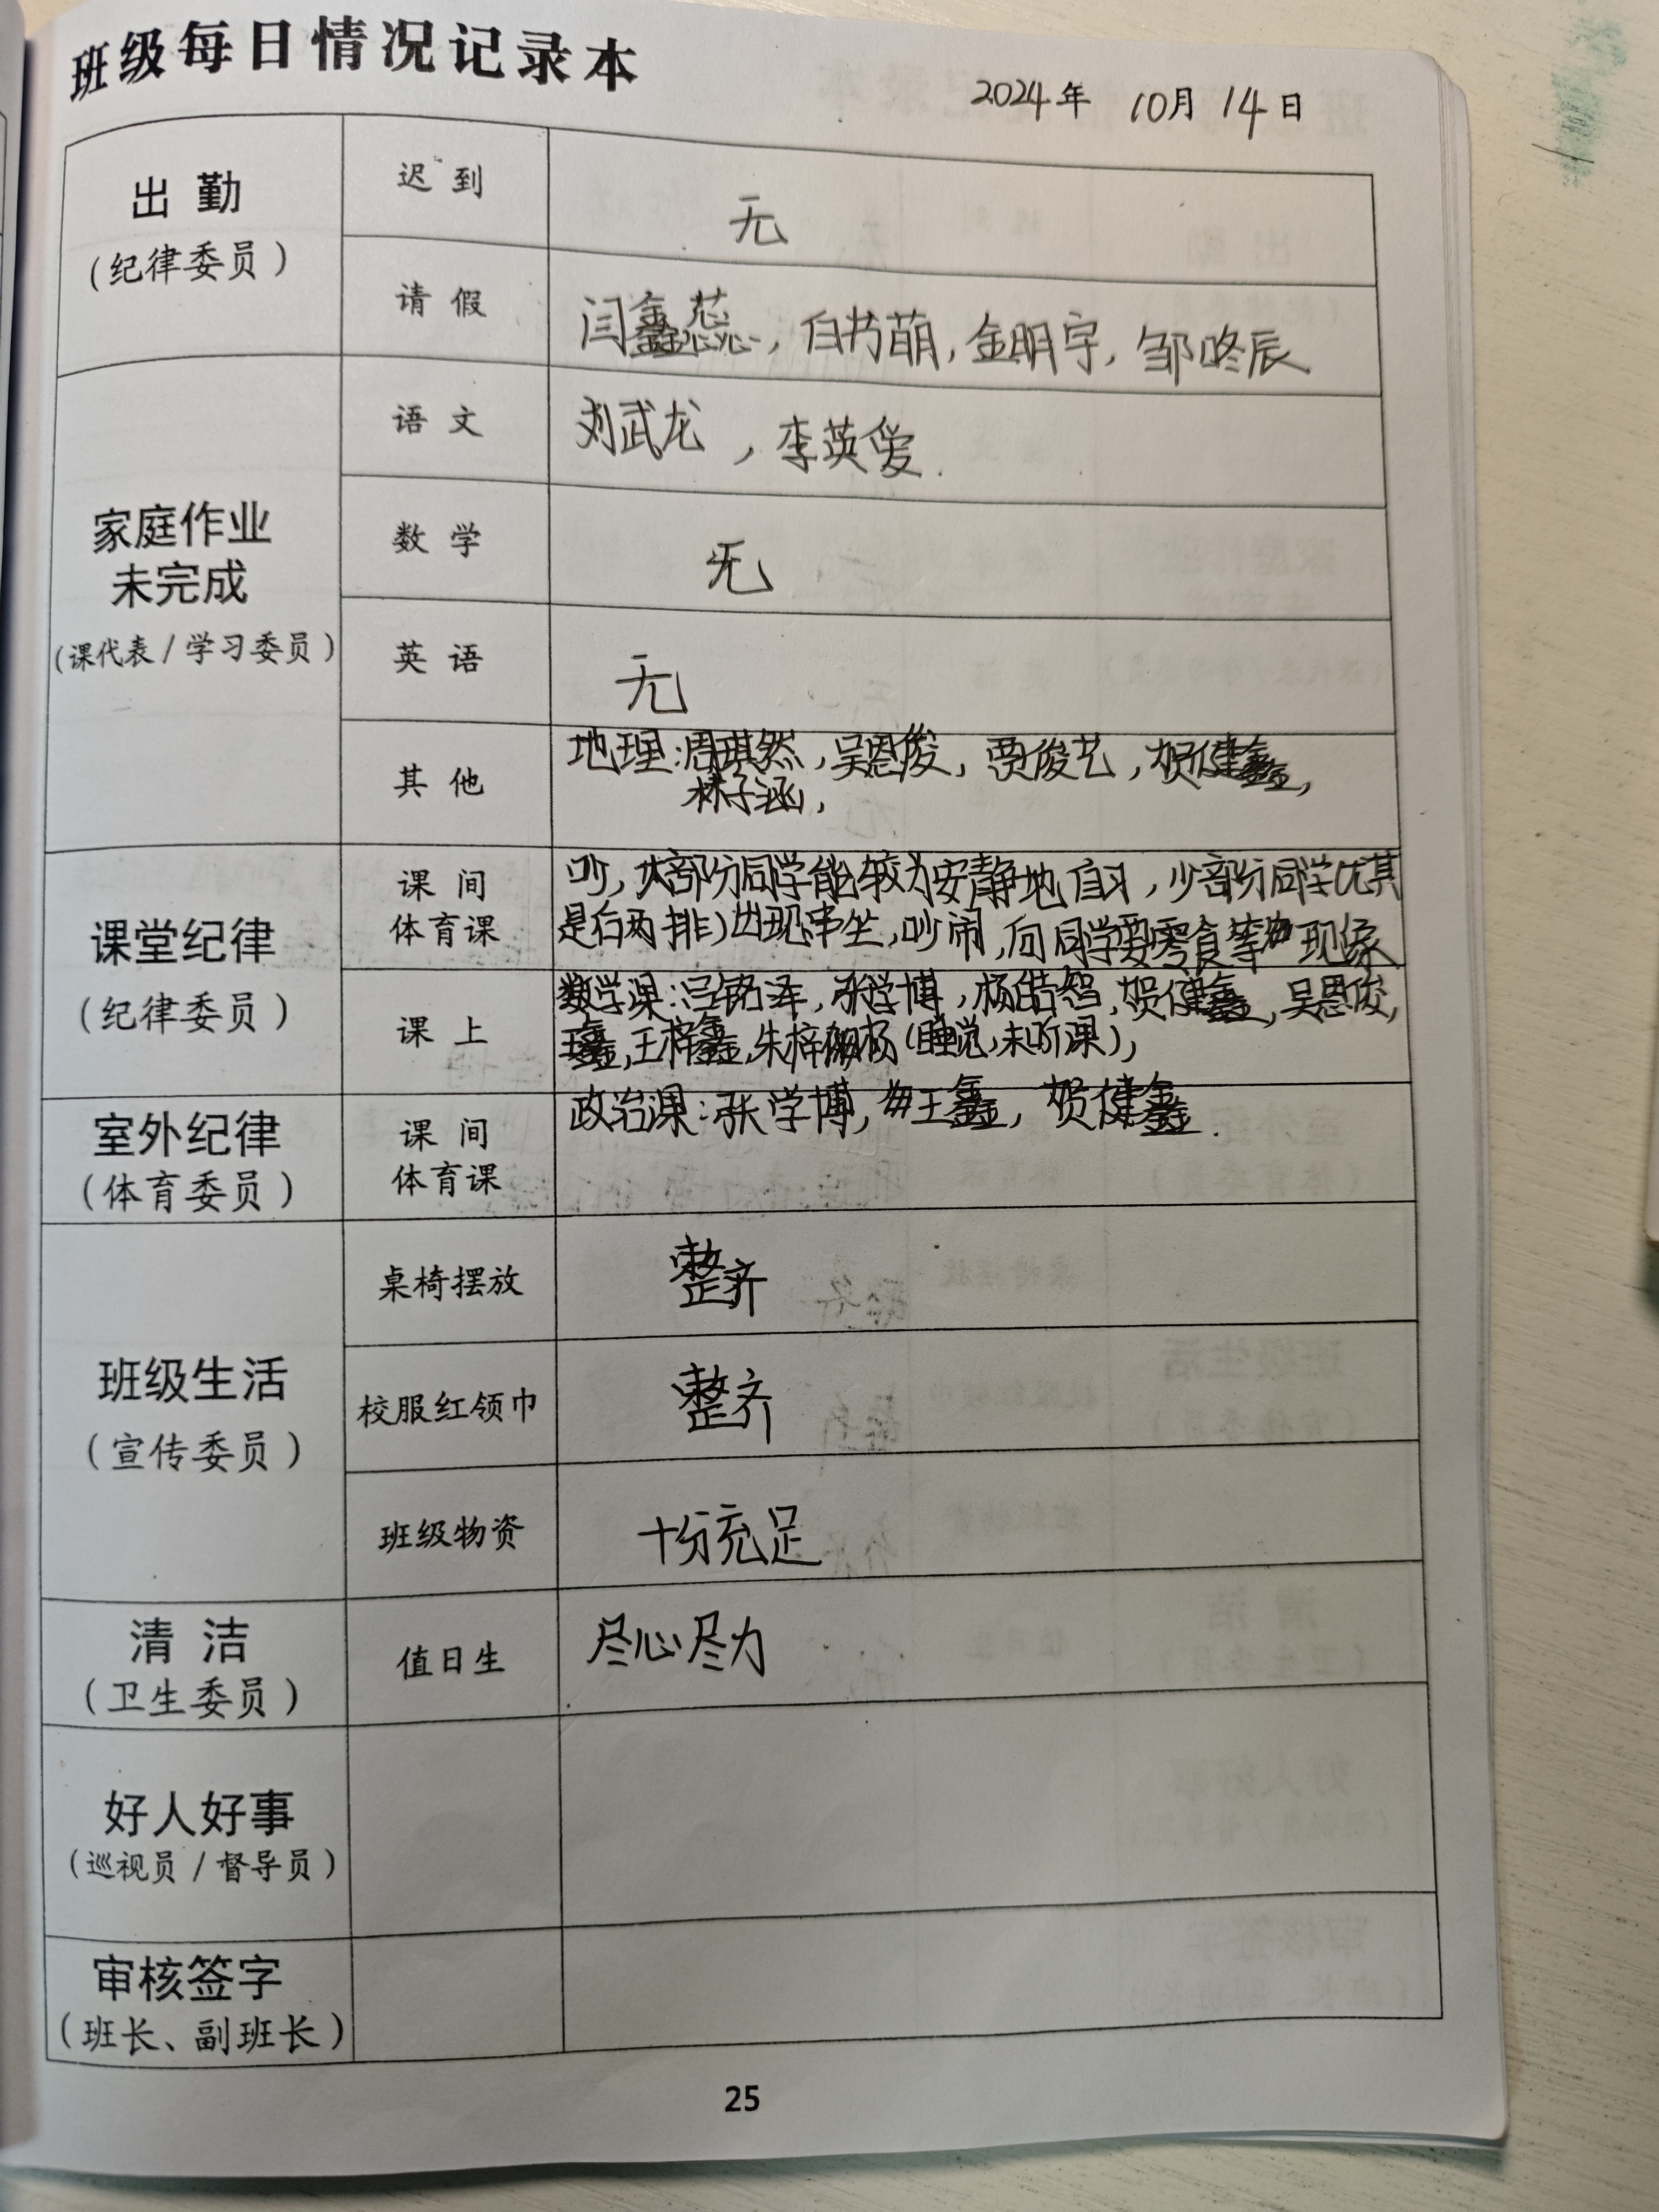 班级每日情况记录本
2024年 10月 14日
出勤
(纪律委员)
迟到
无
请假
闫鑫蕊，白书萌，金明宇，邹咚辰
家庭作业
未完成
(课代表/学习委员)
语文
刘武龙，李英爱.
数学
无
英语
无
其他
地理:周琪然，吴恩俊，贾俊艺，贺健鑫，
林子涵，
课堂纪律
(纪律委员)
课间
体育课
吵，大部分同学能较为安静地自习，少部分同学(尤其
是后两排)出现串坐，吵闹，向同学要零食等现象
课上
数学课:铭泽，张学博，杨皓智，贺健鑫，吴恩俊，
王鑫，王梓鑫，朱梓杨(睡觉，未听课)，
室外纪律
(体育委员)
课间
体育课
政治课:张学博，王鑫，贺健鑫.
班级生活
(宣传委员)
桌椅摆放
整齐
校服红领巾
整齐
班级物资
十分充足
清洁
(卫生委员)
值日生
尽心尽力
好人好事
(巡视员/督导员)
审核签字
(班长、副班长)
25